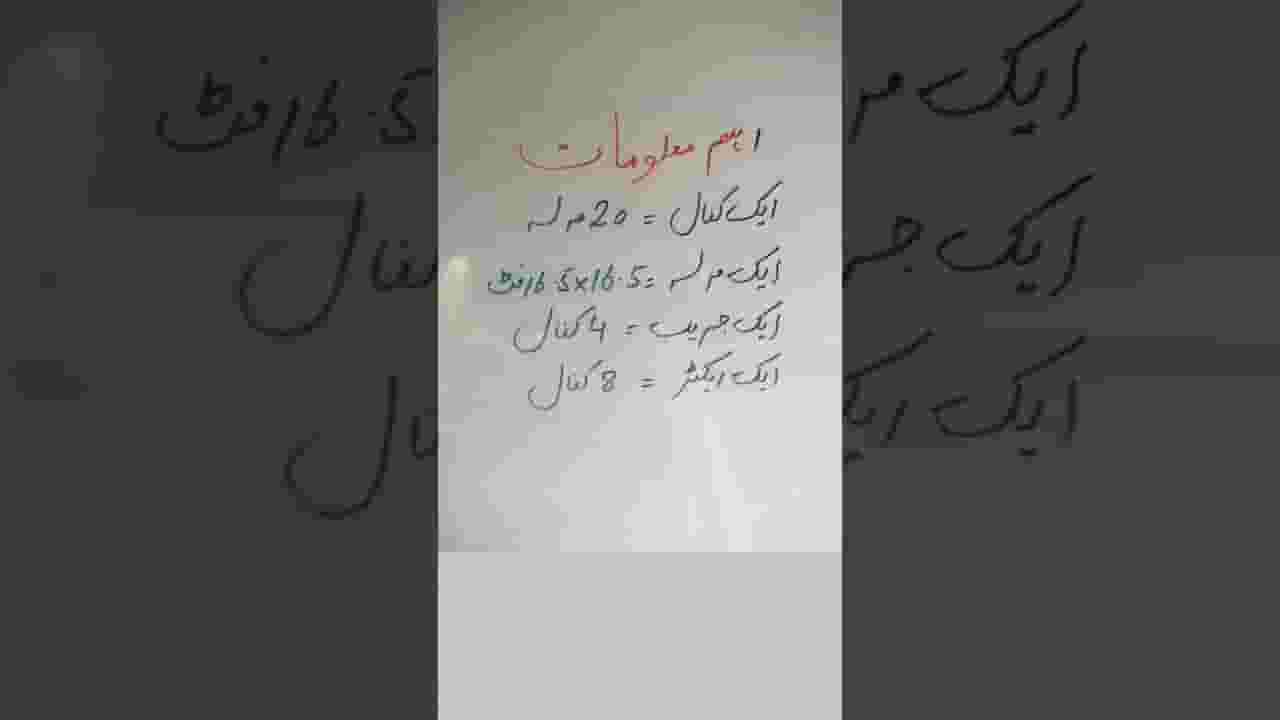 اہم معلومات
ایک کنال = 20 مرلہ
ایک مرلہ = 16.5x16.5 فٹ
ایک جریب = 4 کنال
ایک ایکٹر = 8 کنال